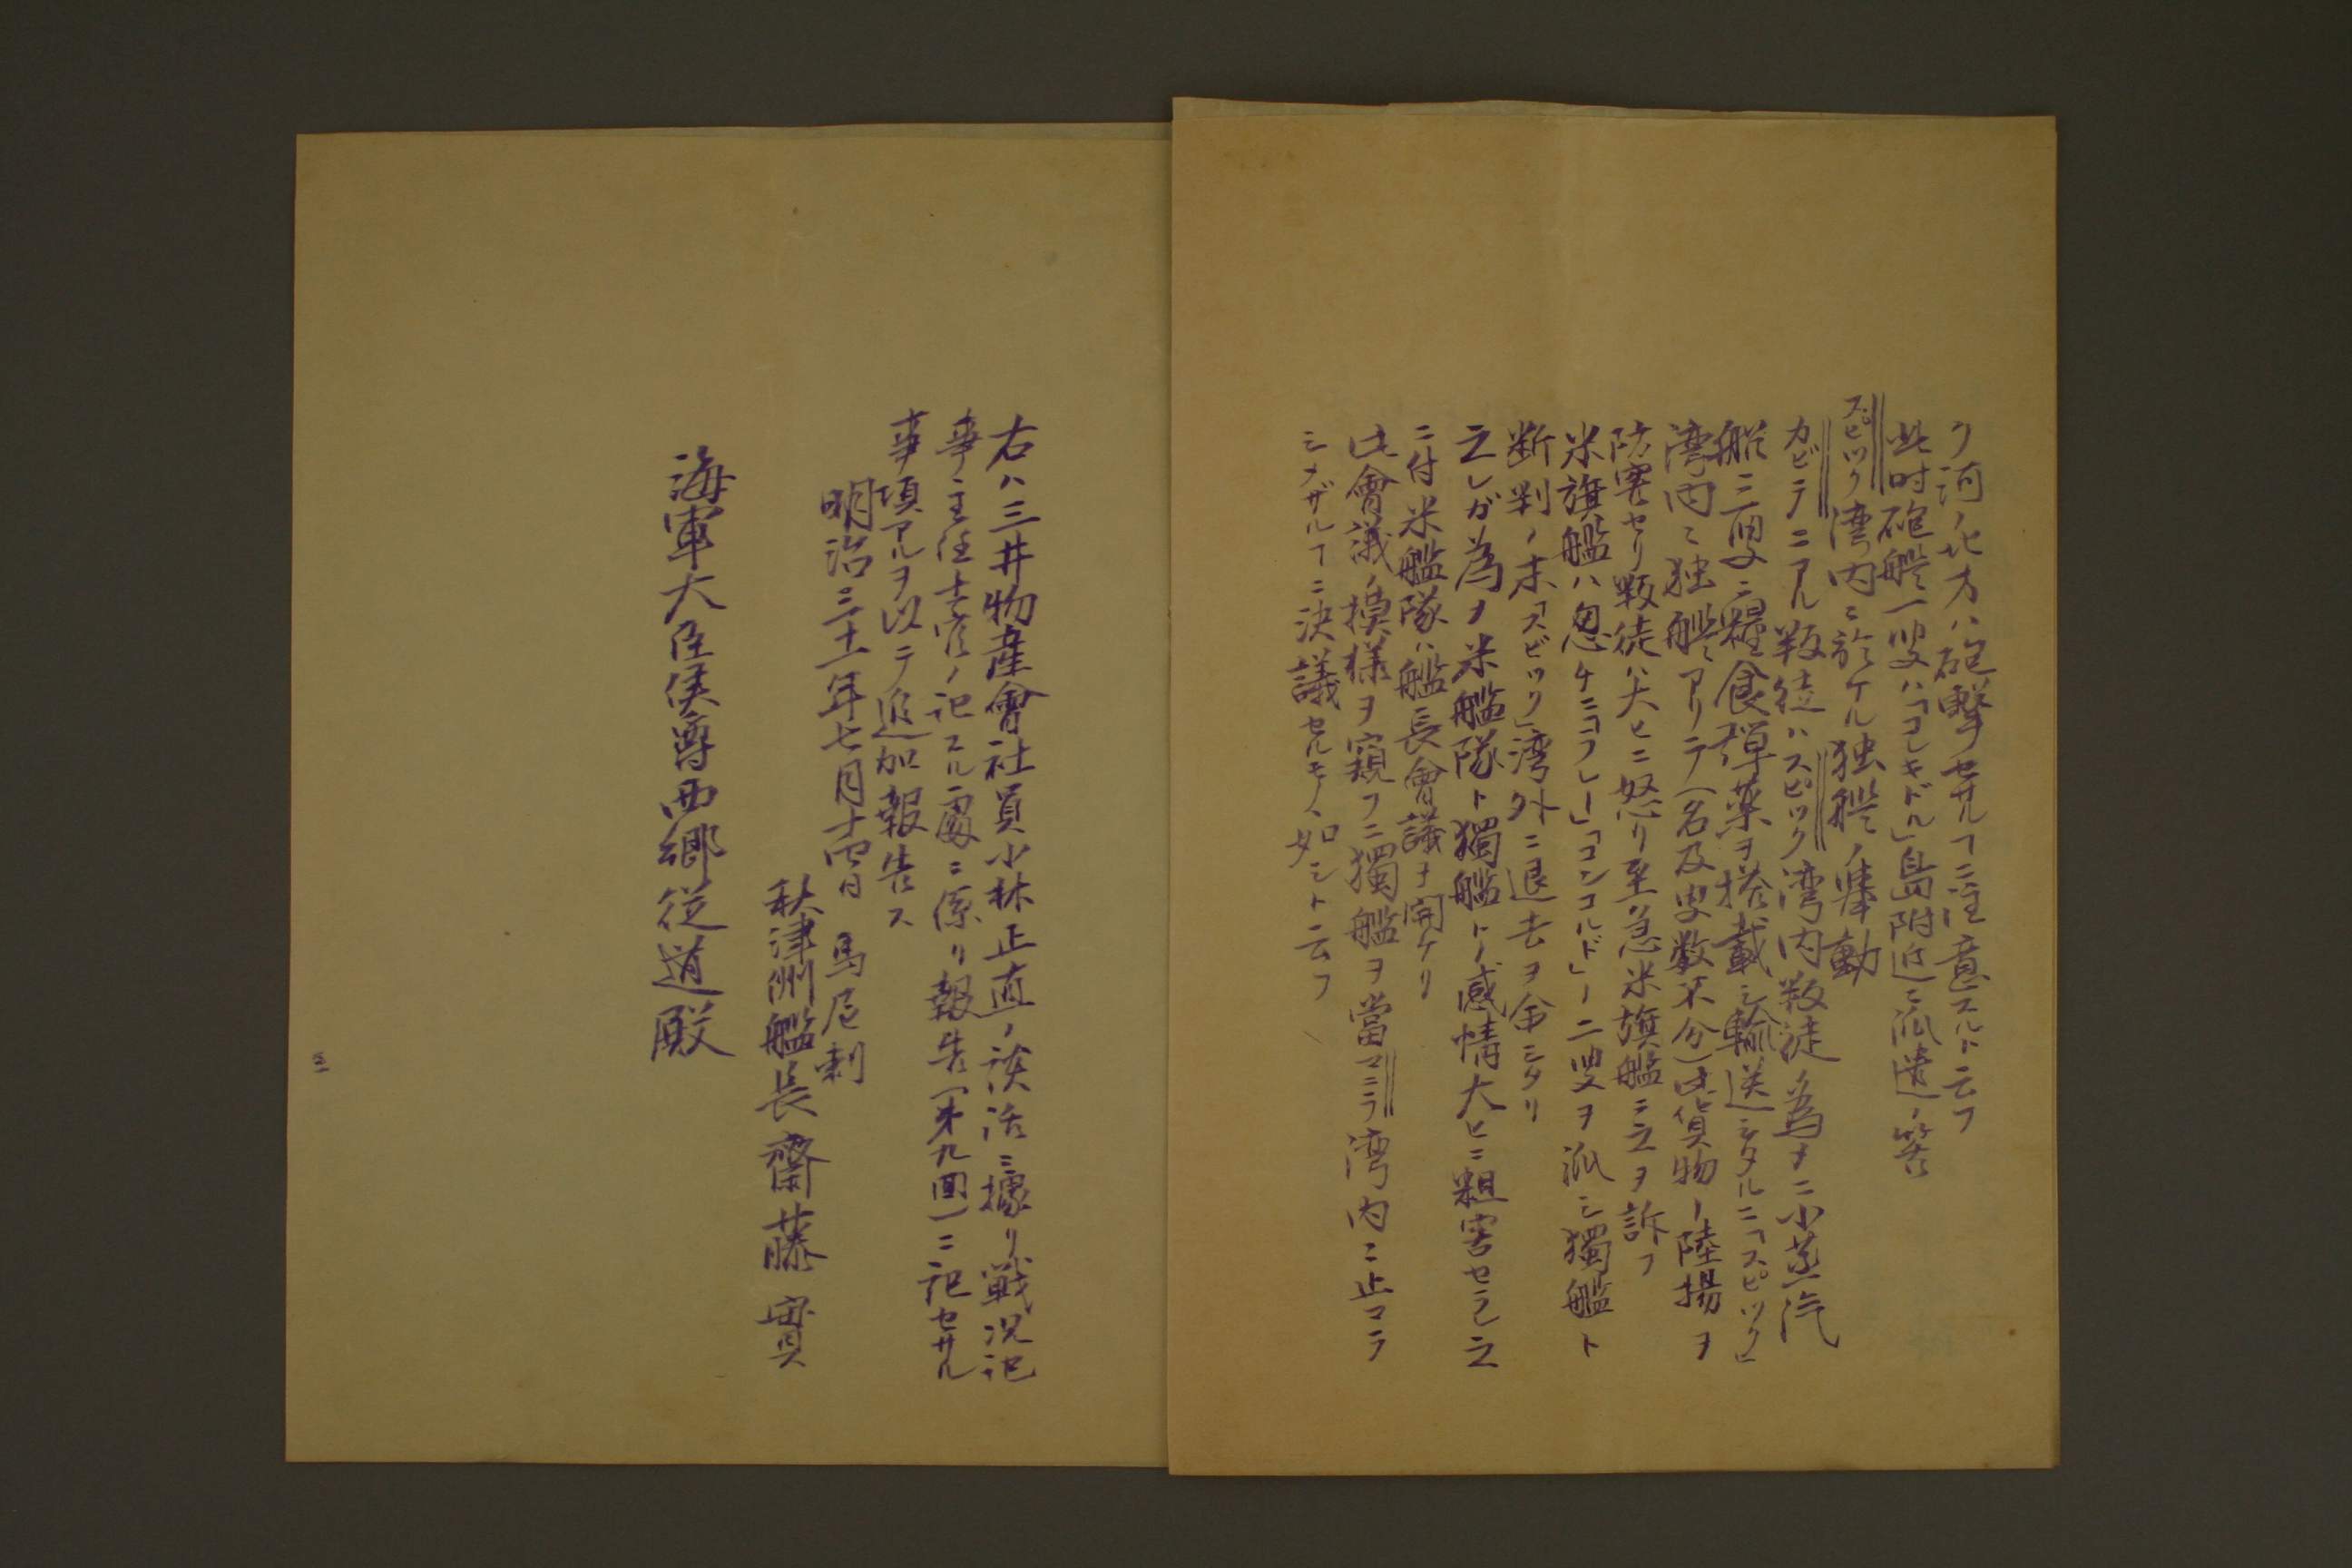 ク河ノ北方ハ砲撃セザルヿニ注意スルト云フ
此時砲艦一隻ハ「コレキドル」島附近ニ派遣ノ筈
スピック湾内ニ於ケル独艦ノ挙動
カビテニアル叛徒ハスピック湾内叛徒ノ為メニ小蒸汽
船三隻ニ糧食弾薬ヲ搭載シ輸送シタルニ「スピック」
湾内ニ独艦アリテ(名及隻数不分)此貨物ノ陸揚ヲ
防害セリ叛徒ハ大ヒニ怒リ至急米旗艦ニ之ヲ訴フ
米旗艦ハ忽チ「コフレー」「コンコルド」ノ二隻ヲ派シ獨艦ト
断判ノ末「スビック」湾外ニ退去ヲ命シタリ
之レガ為メ米艦隊ト獨艦トノ感情大ヒニ粗害セラレ之
ニ付米艦隊ハ艦長會議ヲ開ケリ
此會議ノ摸様ヲ窺フニ獨艦ヲ當マニラ湾内ニ止マラ
シメザルヿニ決議セルモノヽ如シト云フ
右ハ三井物産會社員小林正直ノ談話ニ據リ戦況記
事主任士官ノ記スル處ニ係リ報告(第九回)ニ記セサル
事項アルヲ以テ追加報告ス
明治三十一年七月十四日 馬尼剌
秋津洲艦長齋藤實
海軍大臣侯爵西郷従道殿